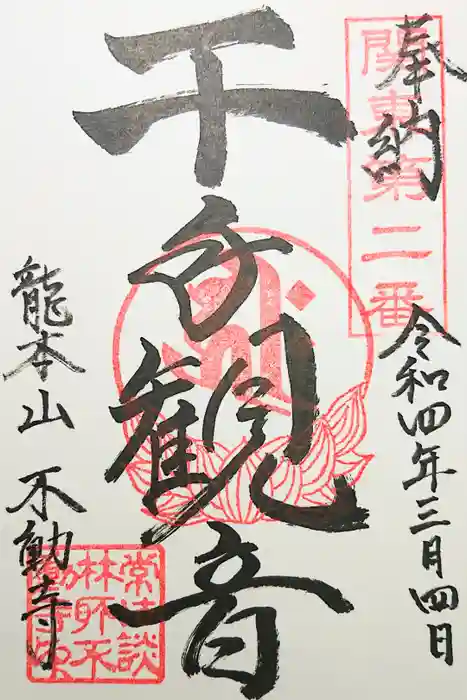 奉納
関東第二番
令和四年三月四日
千手観音
龍本山 不動寺